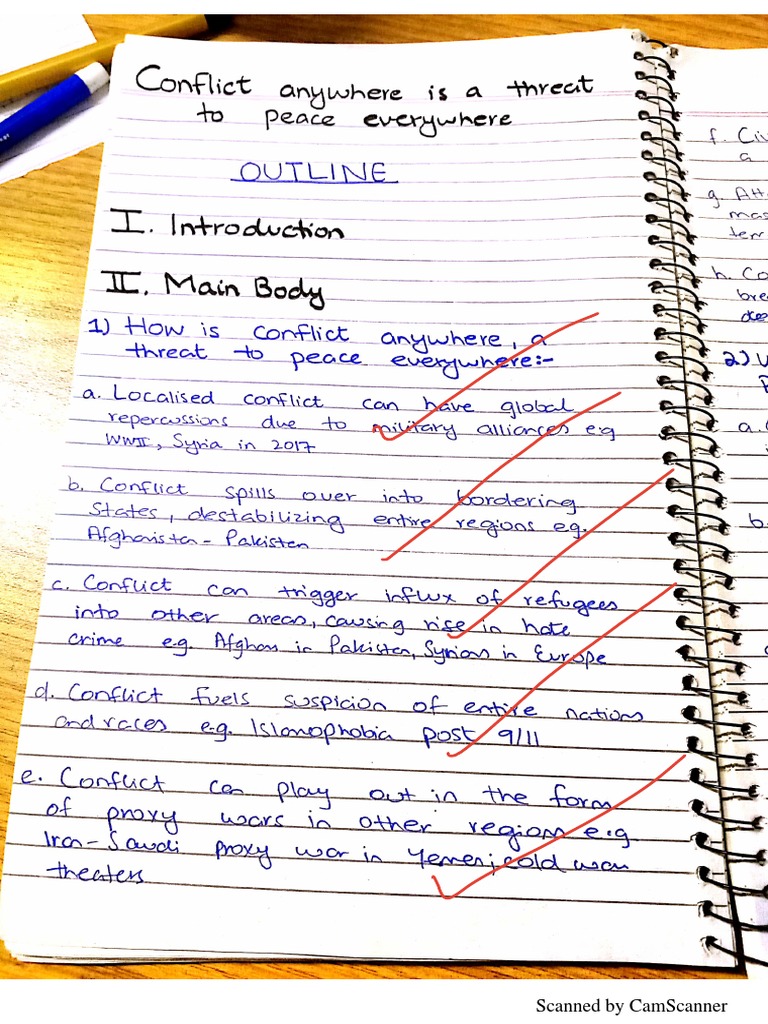 Conflict anywhere is a threat
to peace everywhere
OUTLINE
I. Introduction
II. Main Body
1) How is conflict anywhere, a
threat to peace everywhere:-
a. Localised conflict can have global
repercussions due to military alliances e.g
WWII, Syria in 2017
b. Conflict spills over into bordering
States, destabilizing entire regions eg.
Afghanistan - Pakistan
c. Conflict can trigger influx of refugees
into other areas, causing rise in hate
crime e.g. Afghans in Pakistan, Syrians in Europe
d. Conflict fuels suspicion of entire nations
and races e.g. Islamophobia post 9/11
e. Conflict can play out in the form
of proxy wars in other regions e.g
Iran-Saudi proxy war in Yemen, cold war
theaters
f. Civ
a
g. Att
mas
terr
h. Co
bre
2)
a.
b.
Scanned by CamScanner